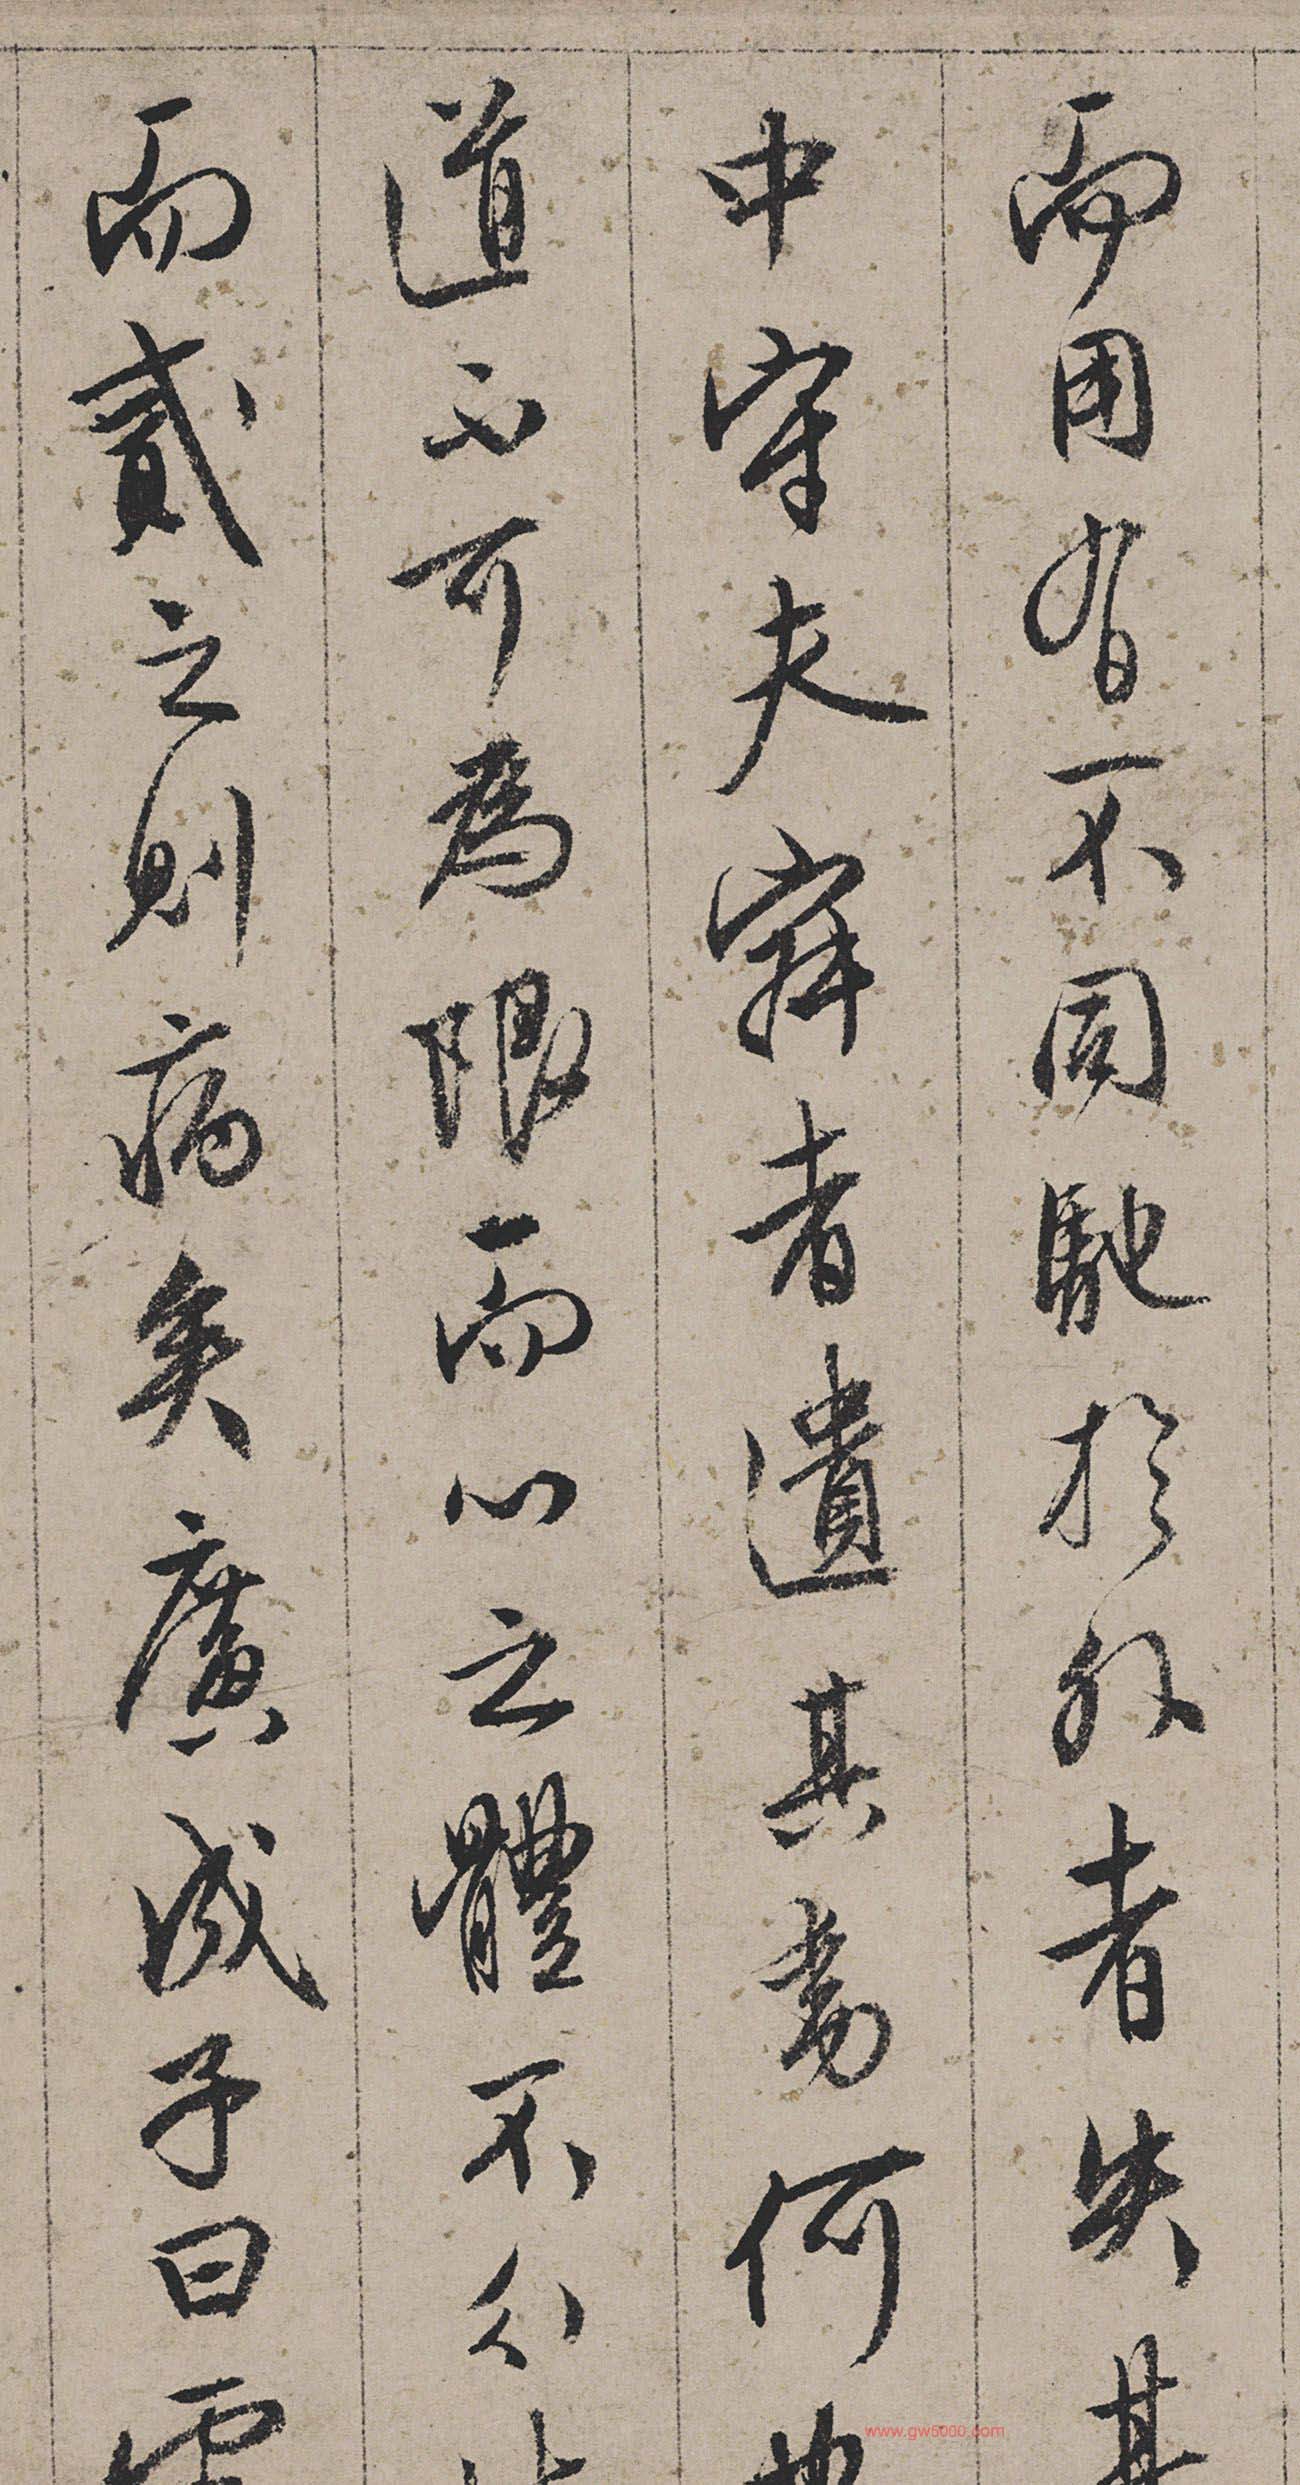 而用有不同馳於外者失其
中守夫寂者遺其何
道不可為限而心之體不分
而貳之則病矣廣成子曰
www.gw5000.com